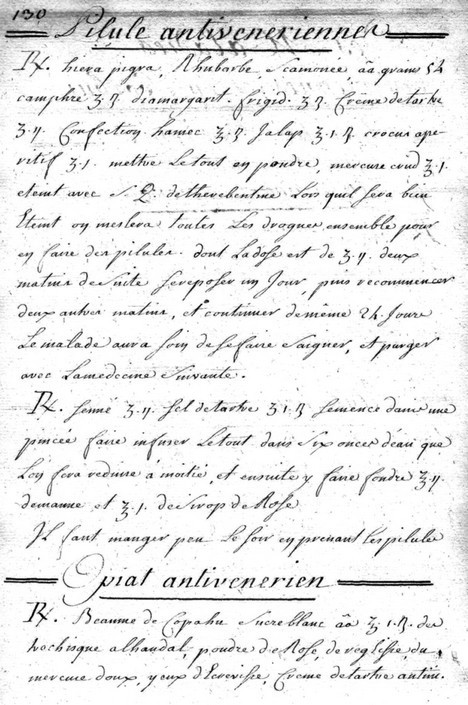 130
Pilule antiveneriennes
℞. hiera pigra, Rhubarbe, Scamonée āā grains 54
camphre ʒ.ß. diamargarit. frigid. ʒ.ß. Creme de tartre
ʒ.ij. Confection hamec ʒ.ß. Jalap ʒ.1.ß. crocus ape
ritif ʒ.1. mettre Le tout en poudre, mercure crud ʒ.1
eteint avec S. Q. de therebentine Lors quil sera bien
Eteint on meslera toutes Les drogues ensemble pour
en faire des pilules. dont La dose est de ʒ.ij. deux
matins de suite Se reposer un Jour, puis recommencer
deux autres matins, et continuer de même 24 Jours
Le malade aura Soin de Se faire Saigner, et purger
avec La medecine Suivante.
℞. Senné ʒ.ij. Sel de tartre ʒ.1.ß Semence dans une
pincée faire infuser Le tout dans Six onces deau que
Lon fera reduire à moitié, et ensuite y faire fondre ʒ.ij.
de manne et ʒ.1. de Sirop de Rose
Il faut manger peu Le Soir en prenant Les pilules
Opiat antivenerien
℞. Beaume de Copahu Sucre blanc āā ʒ.1.ß. des
trochisque alhandal, poudre de Rose, de reglisse, du
mercure doux, yeux d'Ecrevisse, Creme de tartre antim.